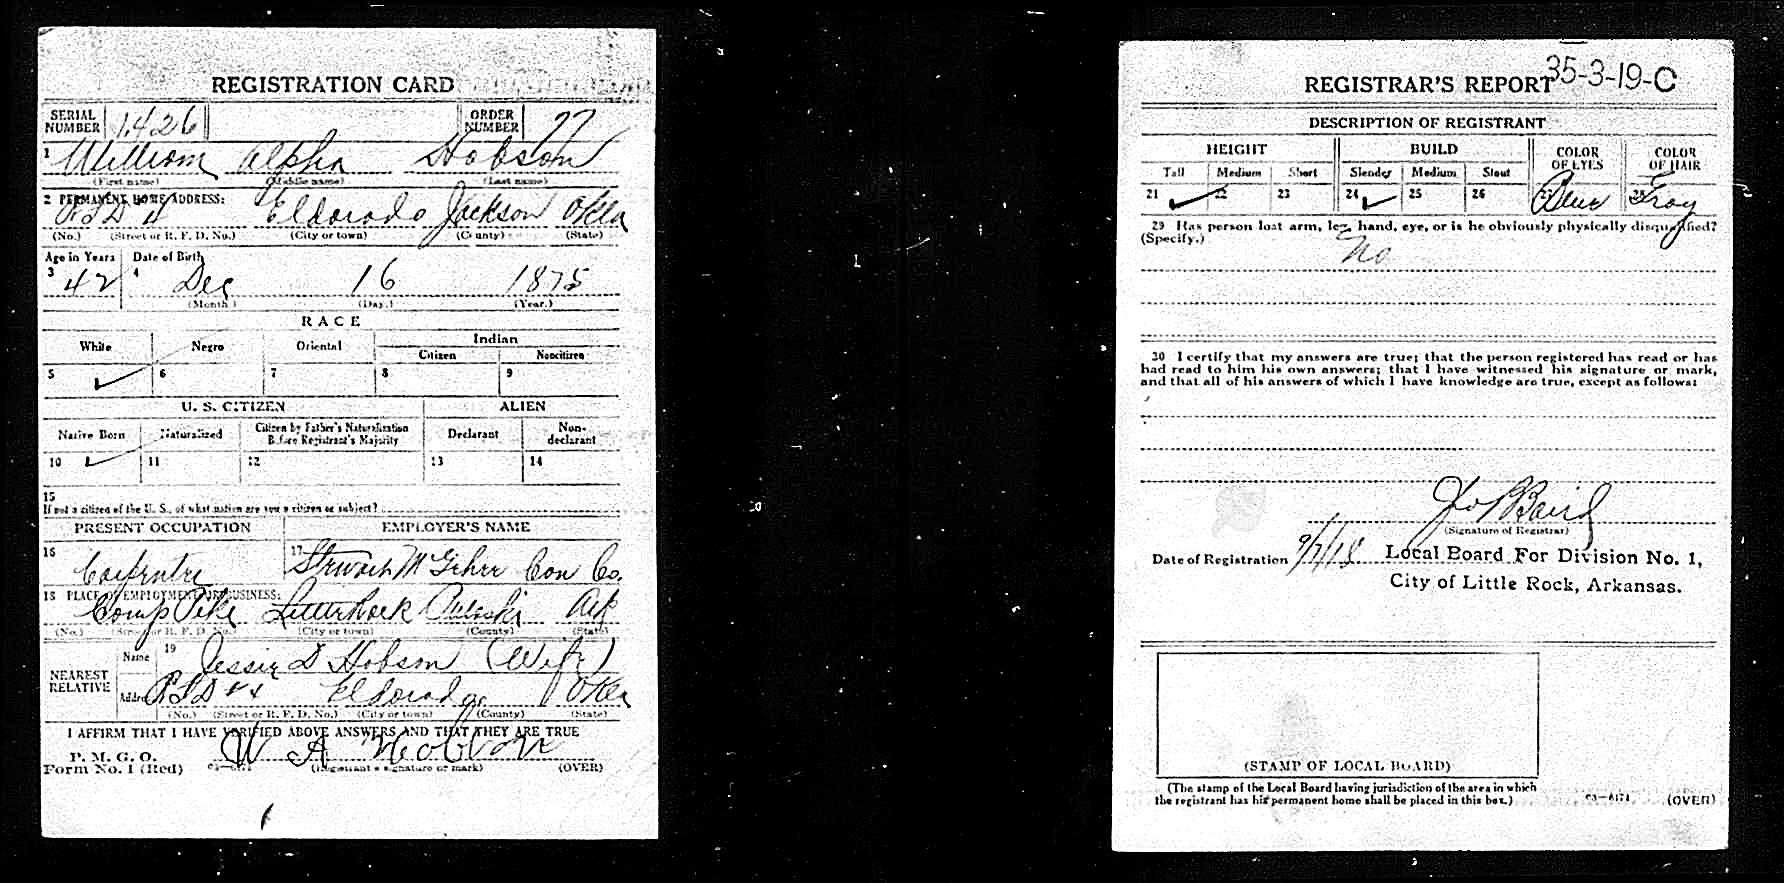 REGISTRATION CARD
SERIAL NUMBER 1426 ORDER NUMBER 77
1 William Alpha Hobson
(First name) (Middle name) (Last name)
2 PERMANENT HOME ADDRESS:
RFD 4 Eldorado Jackson Okla
(No.) (Street or R. F. D. No.) (City or town) (County) (State)
Age in Years Date of Birth
3 42 4 Dec 16 1875
(Month.) (Day.) (Year.)
RACE
White Negro Oriental Indian
Citizen Noncitizen
5 ✓ 6 7 8 9
U. S. CITIZEN ALIEN
Native Born Naturalized Citizen by Father's Naturalization Before Registrant's Majority Declarant Non-declarant
10 ✓ 11 12 13 14
15
If not a citizen of the U. S., of what nation are you a citizen or subject?
PRESENT OCCUPATION EMPLOYER'S NAME
16 Carpenter 17 Con Co.
18 PLACE OF EMPLOYMENT OR BUSINESS:
Camp Pike Little Rock Pulaski Ark
(No.) (Street or R. F. D. No.) (City or town) (County) (State)
NEAREST RELATIVE
Name 19 Jessie D Hobson (Wife)
Address RFD #4 Eldorado Okla
(No.) (Street or R. F. D. No.) (City or town) (County) (State)
I AFFIRM THAT I HAVE VERIFIED ABOVE ANSWERS AND THAT THEY ARE TRUE
P. M. G. O.
Form No. 1 (Red) 03—6171 W A Hobson
(Registrant's signature or mark) (OVER)
35-3-19-C
REGISTRAR'S REPORT
DESCRIPTION OF REGISTRANT
HEIGHT BUILD COLOR OF EYES COLOR OF HAIR
Tall Medium Short Slender Medium Stout
21 ✓ 22 23 24 ✓ 25 26 27 Blue 28 Gray
29 Has person lost arm, leg, hand, eye, or is he obviously physically disqualified?
(Specify.) No
30 I certify that my answers are true; that the person registered has read or has
had read to him his own answers; that I have witnessed his signature or mark,
and that all of his answers of which I have knowledge are true, except as follows:
Baird
(Signature of Registrar)
Date of Registration 9/7/18 Local Board For Division No. 1,
City of Little Rock, Arkansas.
(STAMP OF LOCAL BOARD)
(The stamp of the Local Board having jurisdiction of the area in which
the registrant has his permanent home shall be placed in this box.) 03—6171 (OVER)